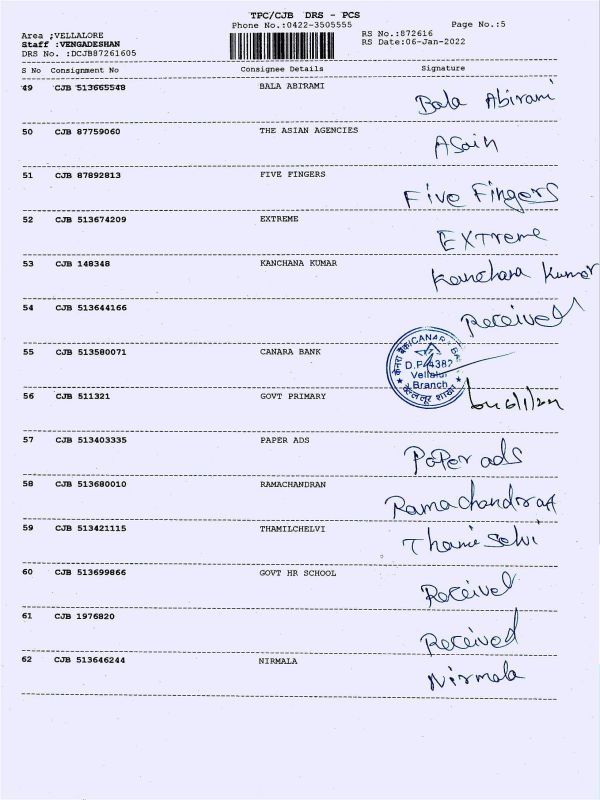 TPC/CJB DRS - PCS
Phone No.:0422-3505555
Page No.:5
Area ;VELLALORE
Staff :VENGADESHAN
DRS No. :DCJB87261605
RS No.:872616
RS Date:06-Jan-2022
S No Consignment No Consignee Details Signature
49 CJB 513665548 BALA ABIRAMI
Bala Abirami
50 CJB 87759060 THE ASIAN AGENCIES
Asain
51 CJB 87892813 FIVE FINGERS
Five Fingers
52 CJB 513674209 EXTREME
EXTreme
53 CJB 148348 KANCHANA KUMAR
Kanchana Kumar
54 CJB 513644166
Received
55 CJB 513580071 CANARA BANK
केनरा बैंक CANARA BA
D.P.4382
Vellalur
Branch
वेल्लूर शाखा
56 CJB 511321 GOVT PRIMARY
6/1/22
57 CJB 513403335 PAPER ADS
PaPer ads
58 CJB 513680010 RAMACHANDRAN
Ramachandran
59 CJB 513421115 THAMILCHELVI
Thami Selvi
60 CJB 513699866 GOVT HR SCHOOL
Received
61 CJB 1976820
Received
62 CJB 513646244 NIRMALA
Nirmala